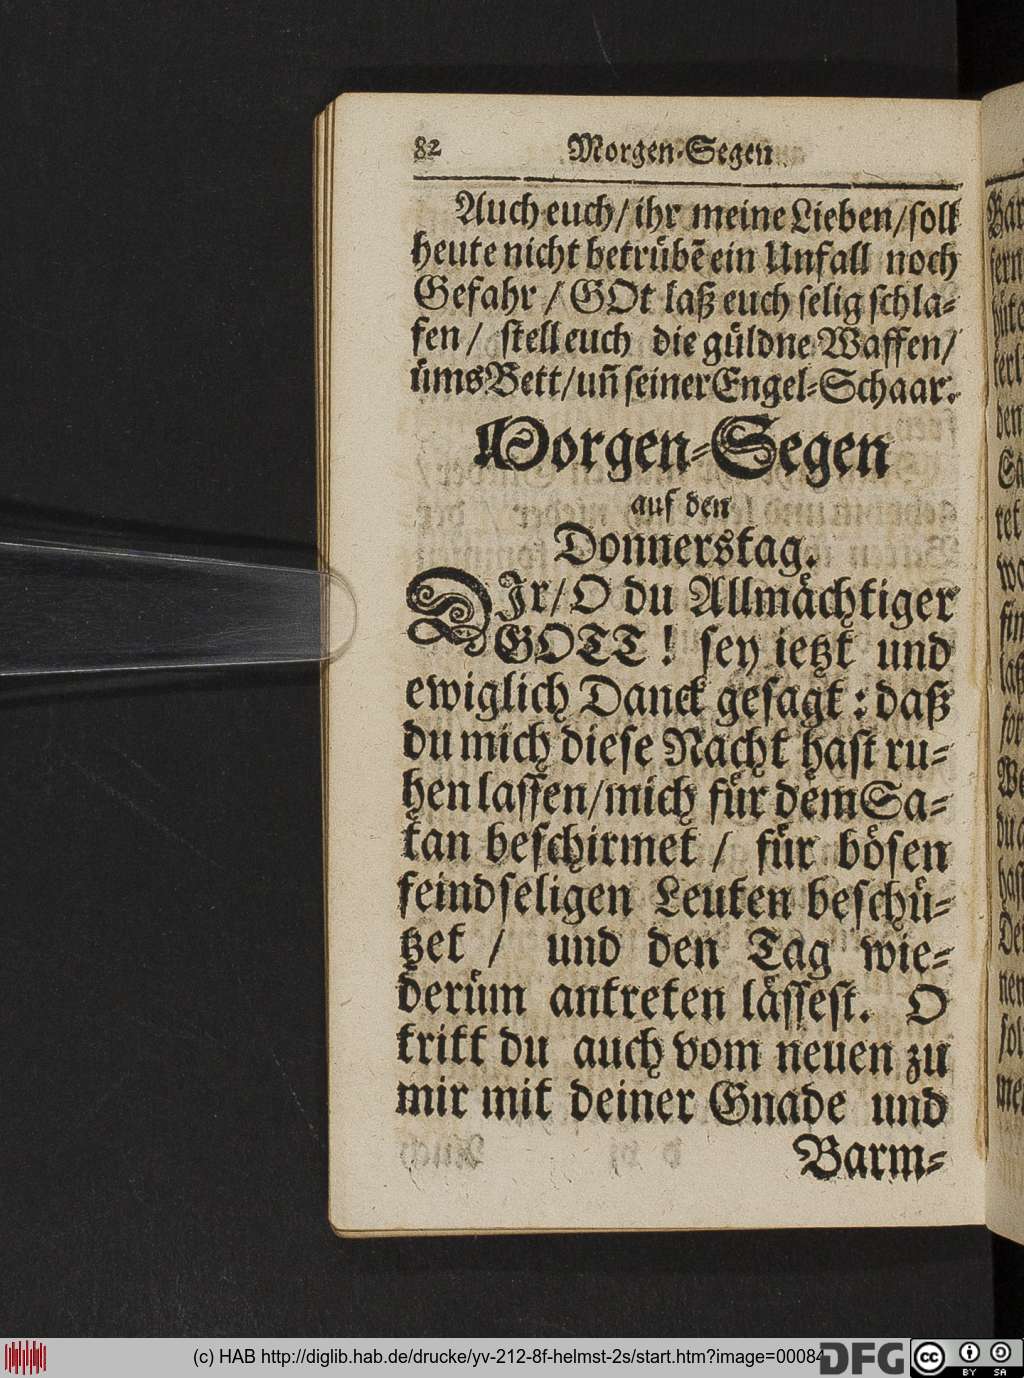 82 Morgen-Segen
Auch euch/ ihr meine Lieben/ soll
heute nicht betrübē ein Unfall noch
Gefahr / GOt laß euch selig schla-
fen/ stell euch die güldne Waffen/
üms Bett/ uñ seiner Engel-Schaar.
Morgen-Segen
auf den
Donnerstag.
DIr/ O du Allmächtiger
GOTT! sey ietzt und
ewiglich Danck gesagt: daß
du mich diese Nacht hast ru-
hen lassen/ mich für dem Sa-
tan beschirmet / für bösen
feindseligen Leuten beschü-
tzet / und den Tag wie-
derüm antreten lässest. O
tritt du auch vom neuen zu
mir mit deiner Gnade und
Barm-
(c) HAB http://diglib.hab.de/drucke/yv-212-8f-helmst-2s/start.htm?image=00084
DFG
cc BY SA